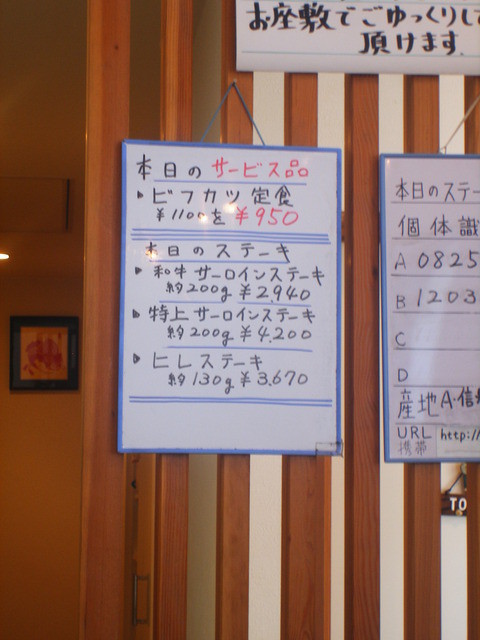 お座敷でごゆっくりし
頂けます
本日のサービス品
▶ ビーフカツ定食
¥1100を ¥950
本日のステーキ
▶ 和牛サーロインステーキ
約200g ¥2,940
▶ 特上サーロインステーキ
約200g ¥4,200
▶ ヒレステーキ
約130g ¥3,670
本日のステー
個体識
A 0825
B 1203
C
D
産地A・信
URL http://
携帯
TO